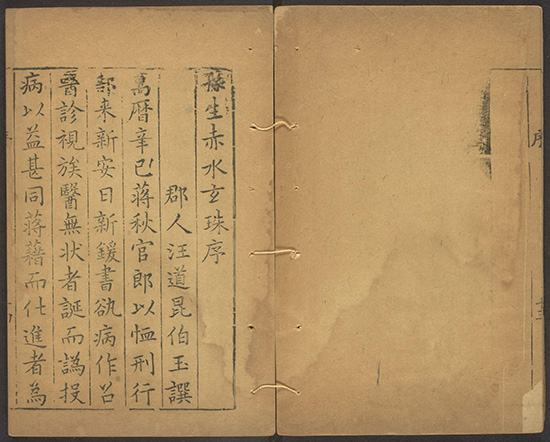 序
孫生赤水玄珠序
郡人汪道昆伯玉譔
萬暦辛巳蔣秋官郎以恤刑行
部来新安日新鍰書病作召
醫診視族醫無状者誕而譌投
病以益甚同蔣藉而仕進者為